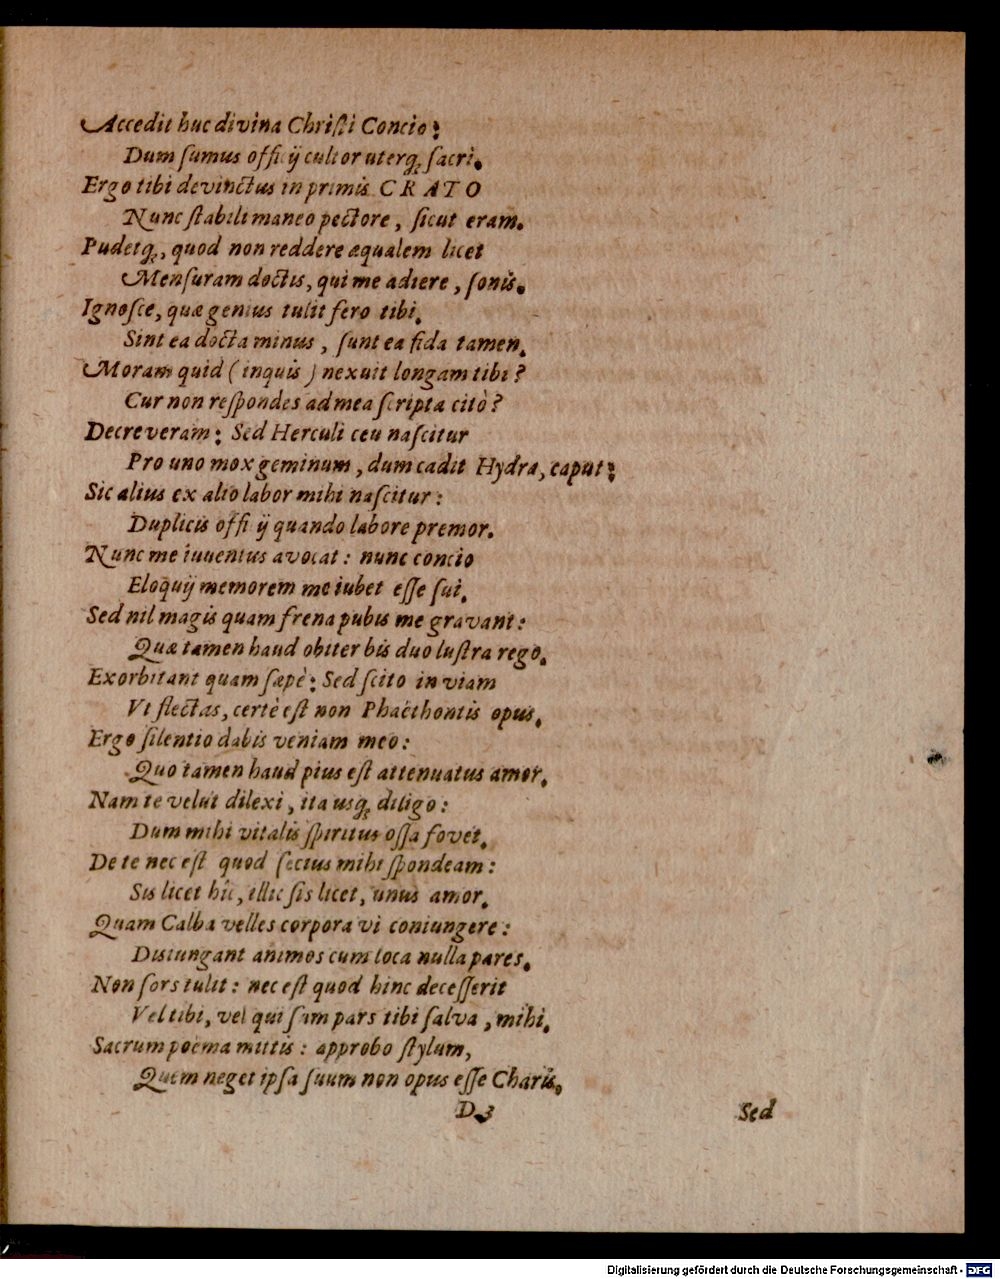 Accedit huc divina Chriſti Concio:
Dum ſumus officij cultor uterq; ſacri.
Ergo tibi devinctus in primis CRATO
Nunc ſtabili maneo pectore, ſicut eram.
Pudetq;, quod non reddere æqualem licet
Menſuram doctis, qui me adiere, ſonis.
Ignoſce, quæ genius tulit fero tibi.
Sint ea docta minus, ſunt ea fida tamen.
Moram quid (inquis) nexuit longam tibi?
Cur non reſpondes ad mea ſcripta citò?
Decreveram: Sed Herculi ceu naſcitur
Pro uno mox geminum, dum cadit Hydra, caput:
Sic alius ex alio labor mihi naſcitur:
Duplicis officij quando labore premor.
Nunc me iuuentus avocat: nunc concio
Eloquij memorem me iubet eſſe ſui.
Sed nil magis quam frena pubis me gravant:
Quæ tamen haud obiter bis duo luſtra rego.
Exorbitant quam ſæpè: Sed ſcito in viam
Vt flectas, certè eſt non Phaëthontis opus.
Ergo ſilentio dabis veniam meo:
Quo tamen haud pius eſt attenuatus amor.
Nam te velut dilexi, ita usq; diligo:
Dum mihi vitalis ſpiritus oſſa fovet.
De te nec eſt quod ſecius mihi ſpondeam:
Sis licet hîc, illic ſis licet, unus amor.
Quam Calba velles corpora vi coniungere:
Disiungant animos cum loca nulla pares.
Non ſors tulit: nec eſt quod hinc deceſſerit
Vel tibi, vel qui ſum pars tibi ſalva, mihi.
Sacrum poëma mittis: approbo ſtylum,
Quem neget ipſa ſuum non opus eſſe Charis.
D 3 Sed
Digitalisierung gefördert durch die Deutsche Forschungsgemeinschaft - DFG